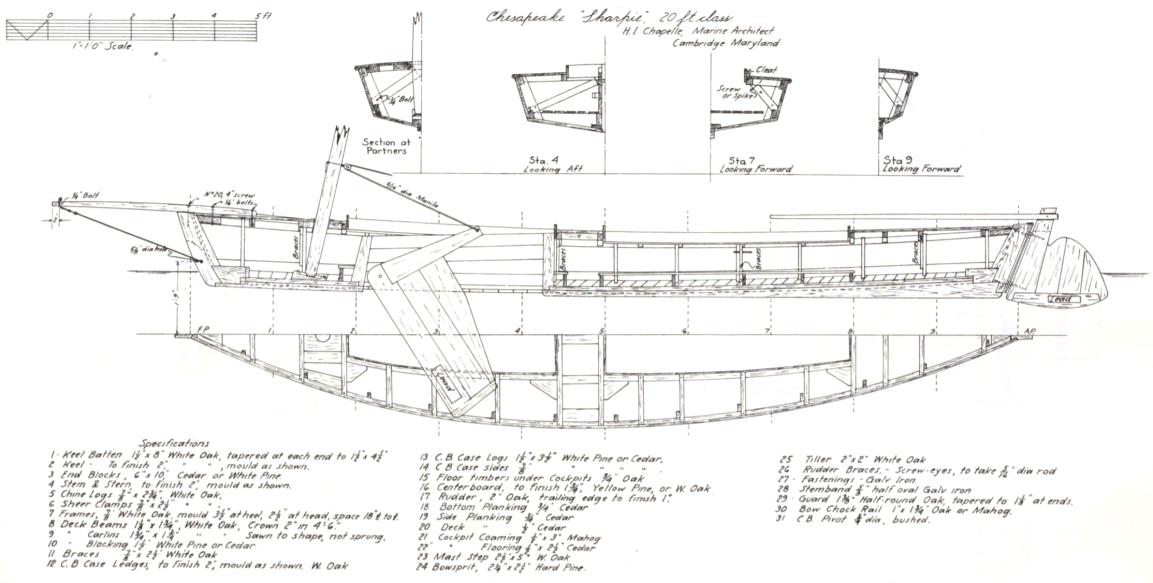 0 1 2 3 4 5 Ft
1"=1'-0" Scale.
Chesapeake "Sharpie", 20 ft class
H. I. Chapelle, Marine Architect
Cambridge Maryland
¼" Bolt
Cleat
Screw
or Spike
Section at
Partners
Sta. 4
Looking Aft
Sta 7
Looking Forward
Sta 9
Looking Forward
¼" Bolt
Nº 20, 4" screw
¼" bolts
dia. Manila
dia hole
Braces
Braces
Braces
Braces
Lead
F.P. 1 2 3 4 5 6 7 8 9 A.P.
Specifications
1 - Keel Batten 1½" x 8" White Oak, tapered at each end to 1½" x 4½"
2 Keel - To finish 2", " " , mould as shown.
3 End Blocks, 6" x 10", Cedar or White Pine
4 Stem & Stern, to finish 2", mould as shown.
5 Chine Logs White Oak.
6 Sheer Clamps " "
7 Frames, White Oak, mould 3½" at heel, 2½" at head, space 18" t to t.
8 Deck Beams 1⅛" x 1¾", White Oak, Crown 2" in 4'-6"
9 " Carlins 1¾" x 1¾" " " Sawn to shape, not sprung.
10 " Blocking 1½" White Pine or Cedar
11 Braces White Oak
12 C.B Case Ledges, to finish 2", mould as shown. W. Oak
13 C.B. Case Logs 1½" x 3½" White Pine or Cedar.
14 C.B Case sides " " " "
15 Floor timbers under Cockpits ¾" Oak
16 Centerboard, to finish 1¾", Yellow Pine, or W. Oak
17 Rudder, 2" Oak, trailing edge to finish 1".
18 Bottom Planking ¾" Cedar
19 Side Planking Cedar
20 Deck " Cedar
21 Cockpit Coaming ½" x 3" Mahog
22 " Flooring ½" x 2½" Cedar
23 Mast Step 2½" x 5" W. Oak
24 Bowsprit, 2¼" x 2½" Hard Pine.
25 Tiller 2" x 2" White Oak
26 Rudder Braces. - Screw-eyes, to take dia rod
27 - Fastenings - Galv Iron
28 Stemband half oval Galv iron
29 - Guard Half-round Oak, tapered to at ends.
30 Bow Chock Rail 1" x 1¾" Oak or Mahog.
31 C.B. Pivot dia, bushed.